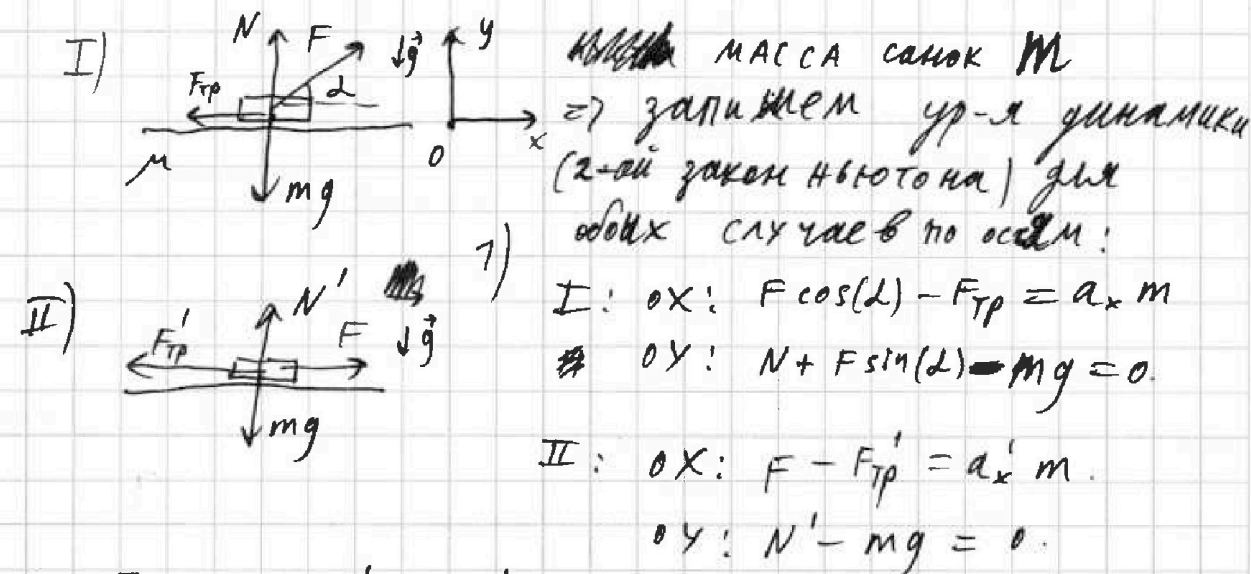 I)
N F ↓g⃗ y
Fтр α
μ 0 x
mg
масса санок m
=> запишем ур-я динамики
(2-ой закон Ньютона) для
обоих случаев по осям:
II)
N' F ↓g⃗
F'тр
mg
1)
I: OX: F cos(α) - Fтр = aₓ m
OY: N + F sin(α) - mg = 0.
II: OX: F - F'тр = a'ₓ m.
OY: N' - mg = 0.